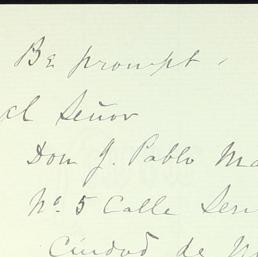 Be prompt.
al Señor
Don J. Pablo Ma
No. 5 Calle
Ciudad de